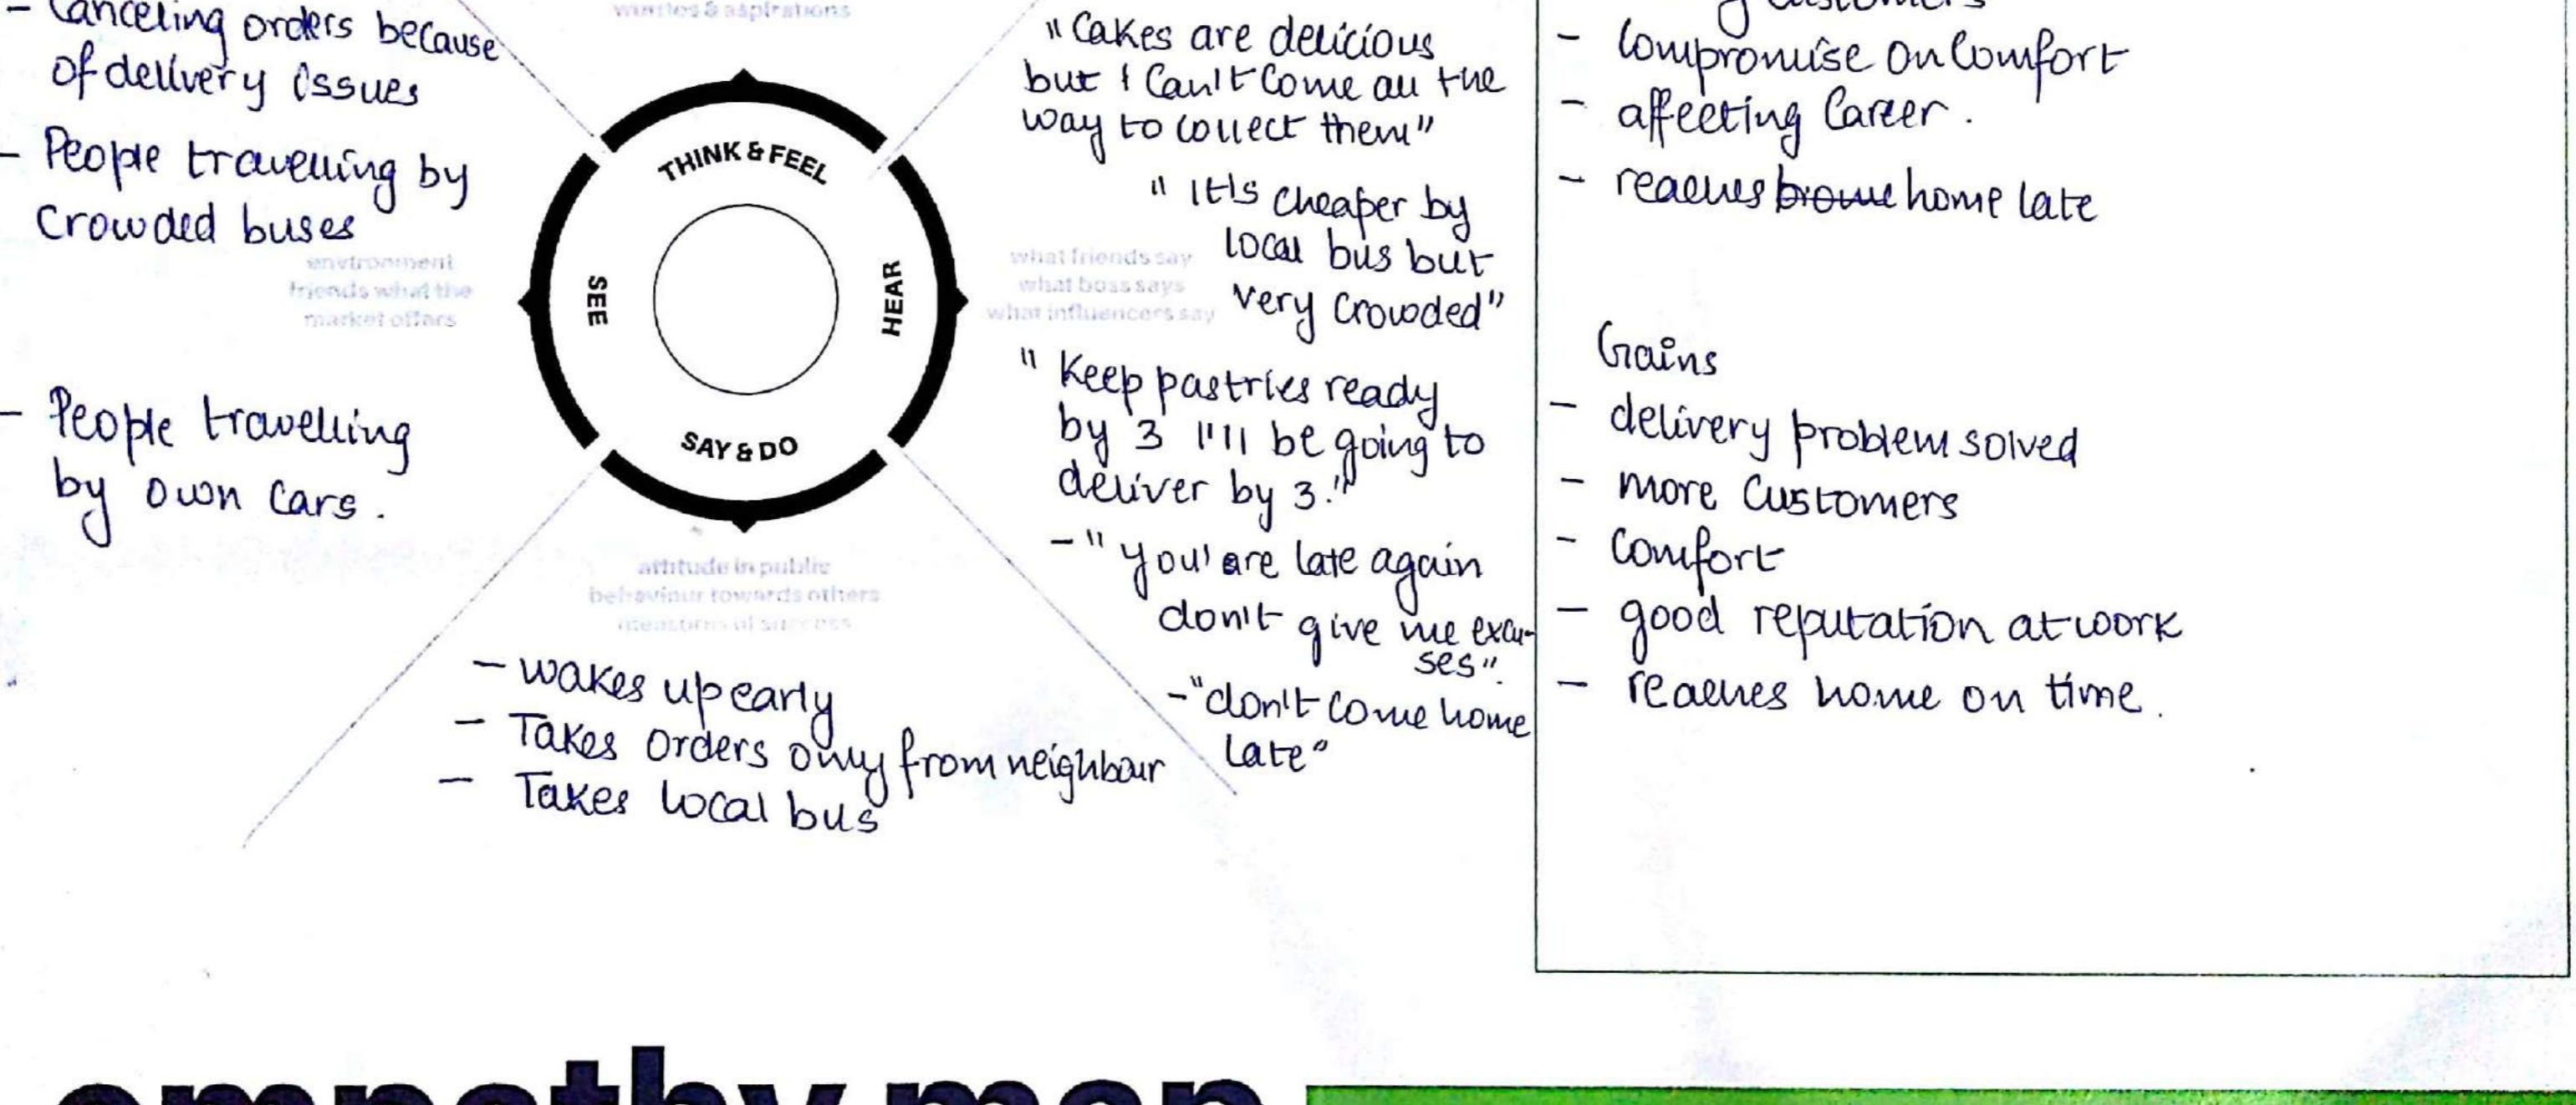 - Canceling orders because
of delivery issues
- People travelling by
Crowded buses
environment
friends what the
market offers
- People travelling
by own cars.
wishes & aspirations
THINK & FEEL
SEE
HEAR
SAY & DO
"Cakes are delicious
but I Can't Come all the
way to collect them"
"It's cheaper by
local bus but
very Crowded"
what friends say
what boss says
what influencers say
"Keep pastries ready
by 3 I'll be going to
deliver by 3."
- "you'are late again
don't give me excu-
ses".
- "don't come home
late"
attitude in public
behaviour towards others
measures of success
- wakes up early
- Takes orders only from neighbour
- Takes local bus
customers
- Compromise on Comfort
- affecting Career.
- reaches home late
Gains
- delivery problem solved
- more Customers
- Comfort
- good reputation at work
- reaches home on time.
empathy map